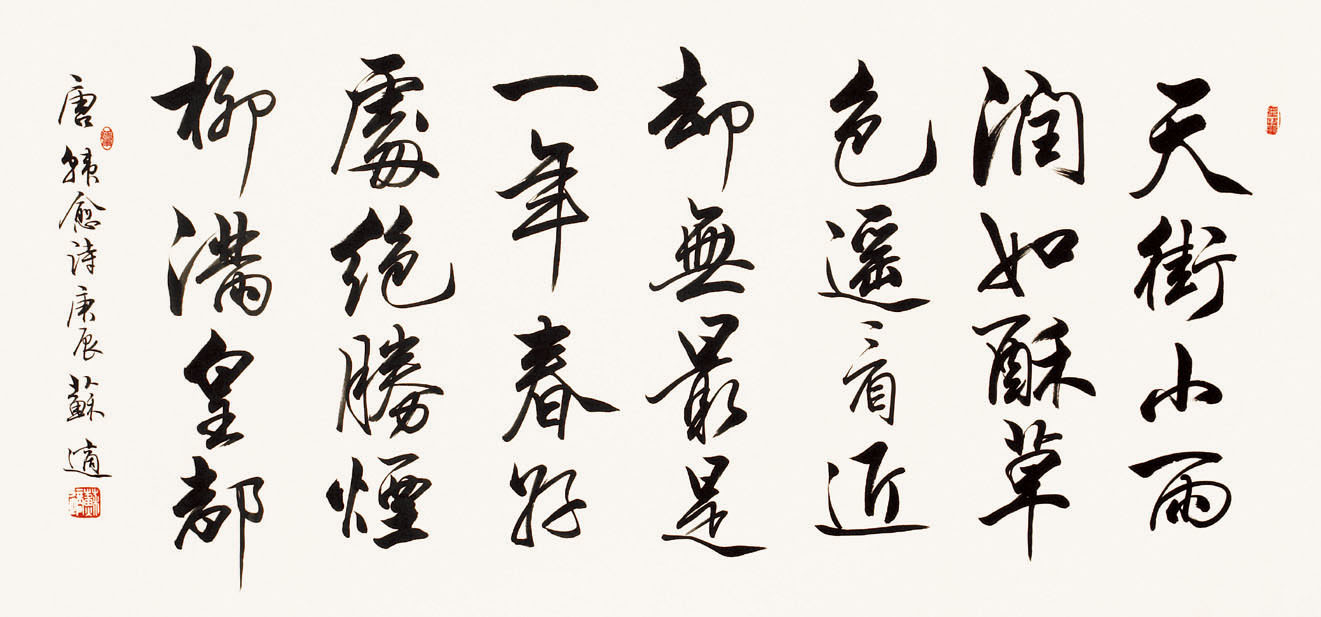 天街小雨
潤如酥草
色遥看近
却無最是
一年春好
處絕勝煙
柳滿皇都
唐韓愈詩庚辰蘇適